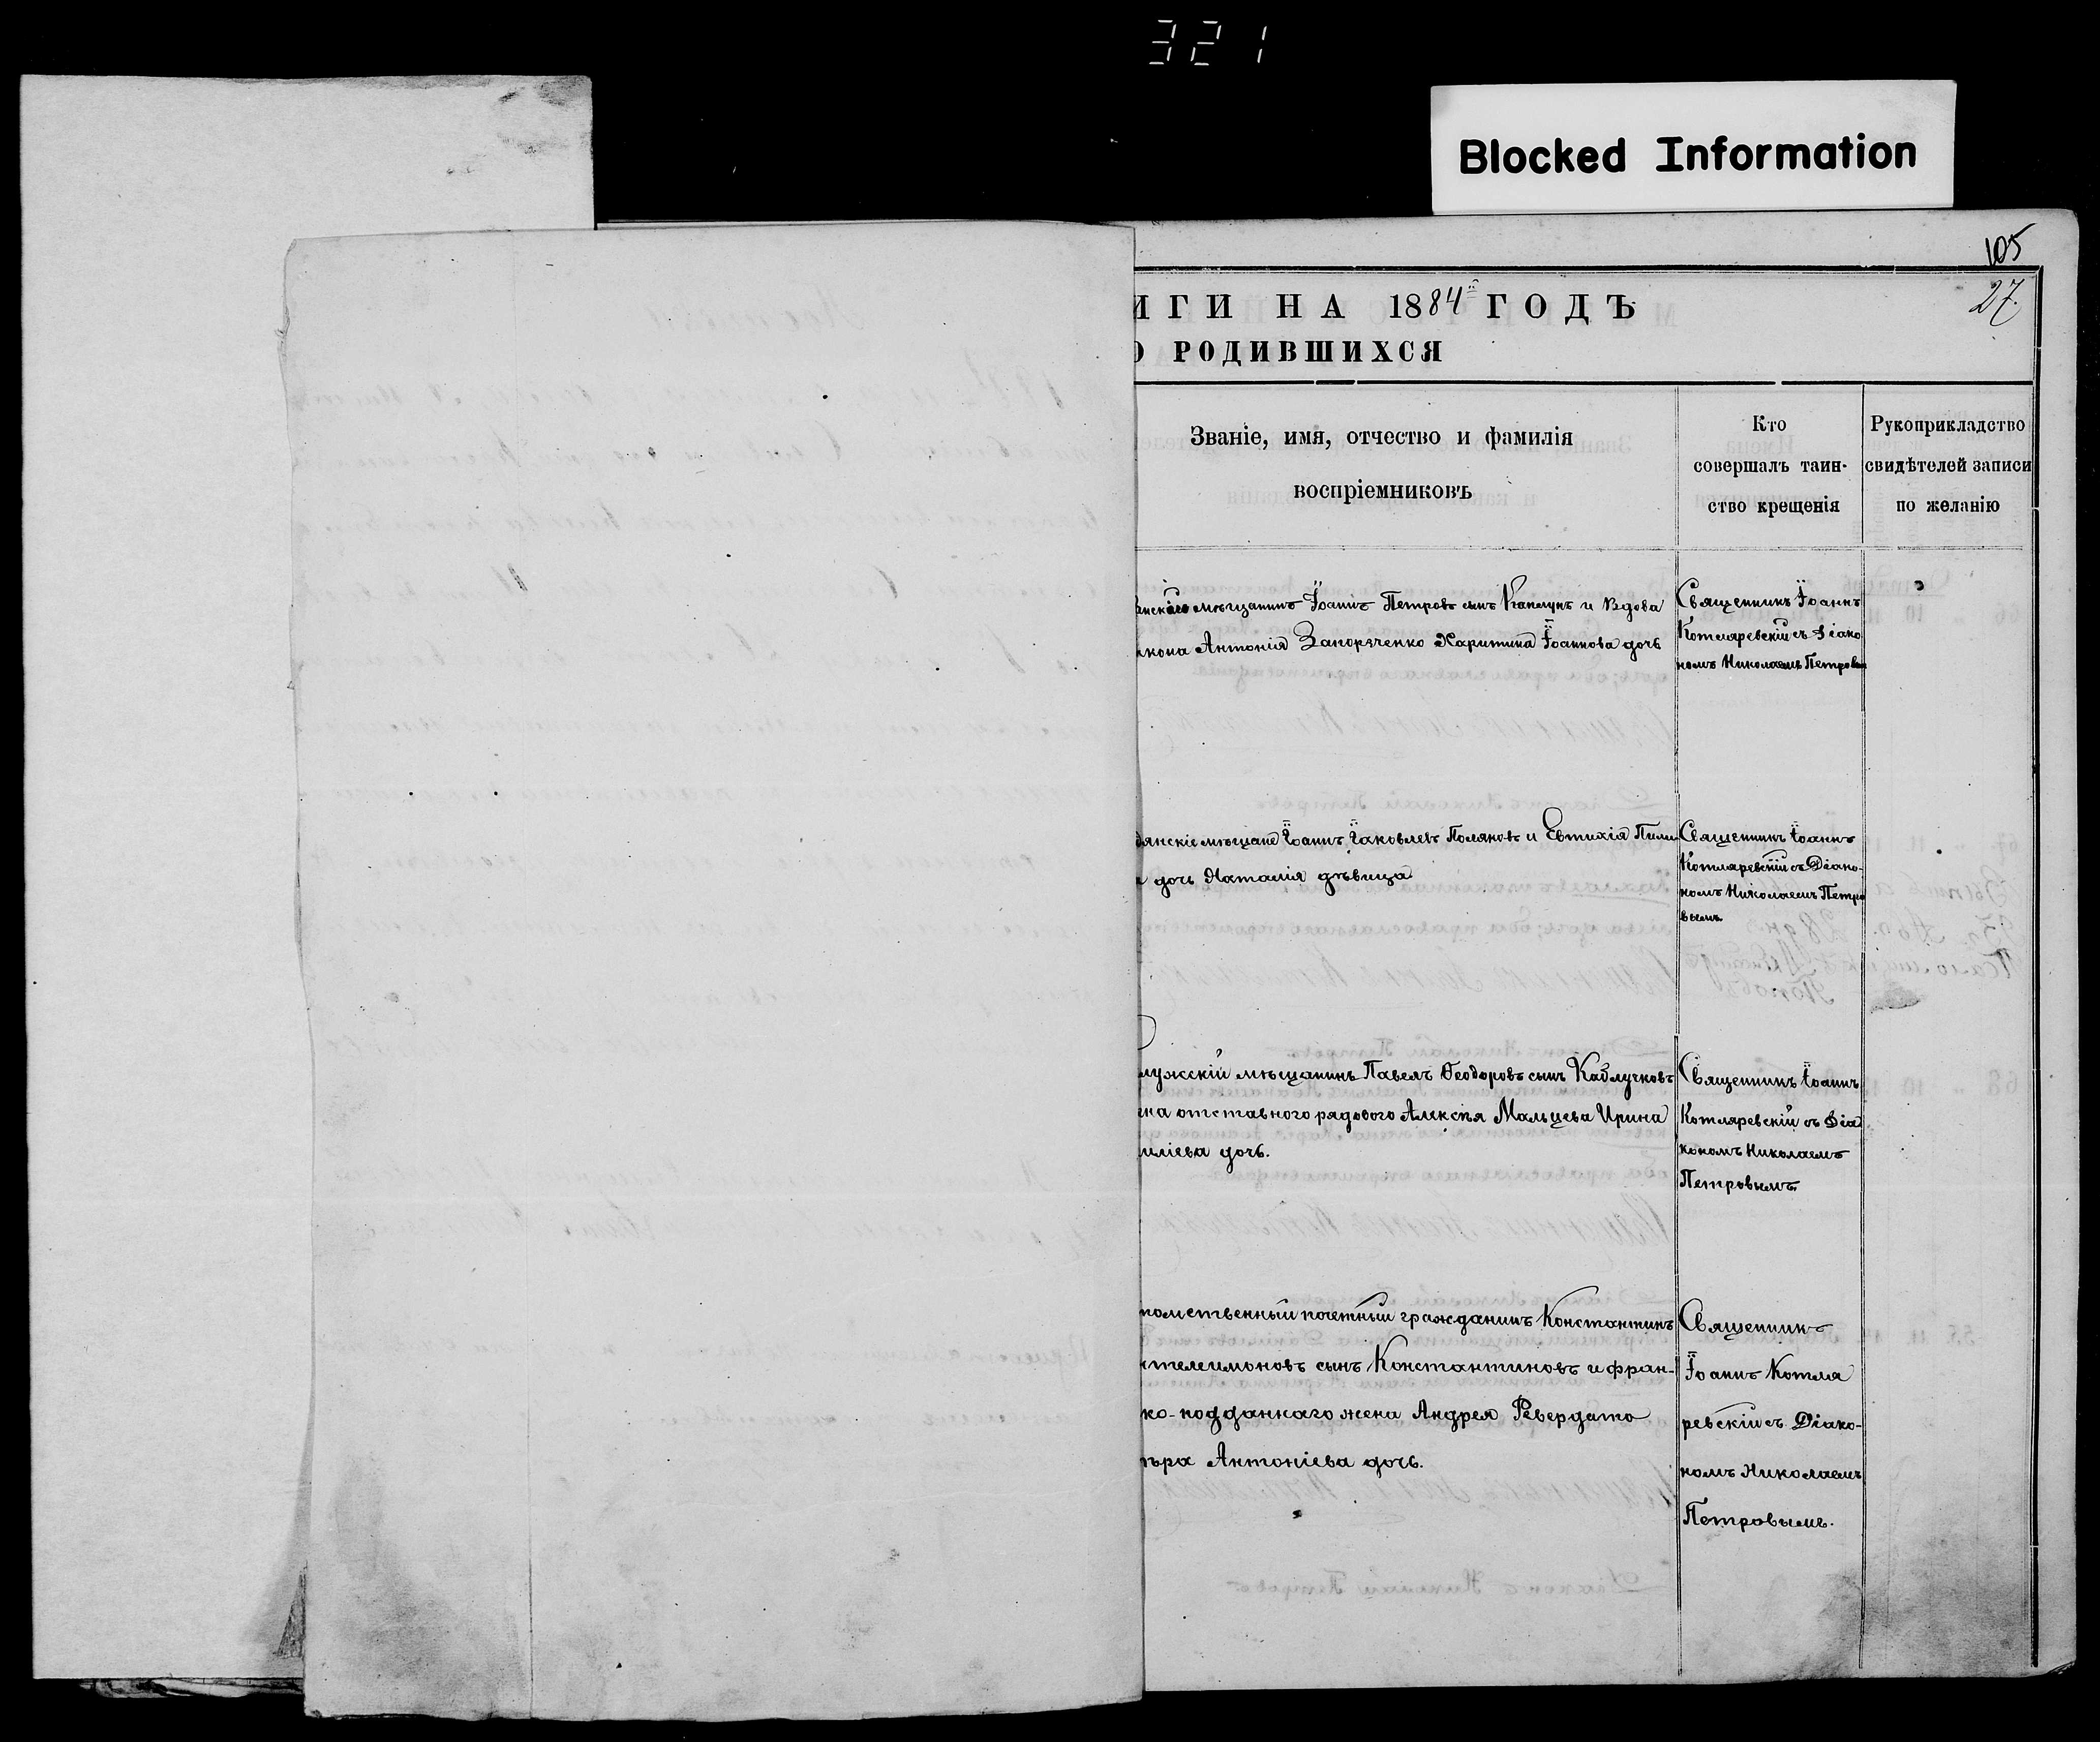 321
Blocked Information
105
27.
ИГИ НА 1884й ГОДЪ
О РОДИВШИХСЯ
Званіе, имя, отчество и фамилія
воспріемниковъ
Кто
совершалъ таин-
ство крещенія
Рукоприкладство
свидѣтелей записи
по желанію
мѣщанинъ Іоаннъ Петровъ сынъ и вдова
кона Антонія Запорѧченко Харитина Іоаннова дочь
Священникъ Іоаннъ
Котляревскій съ Діако
номъ Николаемъ Петровым
дянскіе мѣщане Іоаннъ Іаковлевъ Поляковъ и Евтихія Пили
дочь Наталія дѣвица
Священникъ Іоаннъ
Котляревскій съ Діако-
номъ Николаемъ Петро
вымъ
лужскій мѣщанинъ Павелъ Ѳеодоровъ сынъ Каблучковъ
на отставного рядового Алексѣя Мальцева Ирина
иліева дочь.
Священникъ Іоаннъ
Котляревскій съ Діа
кономъ Николаемъ
Петровымъ.
томственный почетный гражданинъ Константинъ
телеимоновъ сынъ Константиновъ и фран-
ко-подданнаго жена Андрея Ревердато
ѣра Антоніева дочь.
Священникъ
Іоаннъ Котля
ревскій съ Діако-
номъ Николаемъ
Петровымъ.